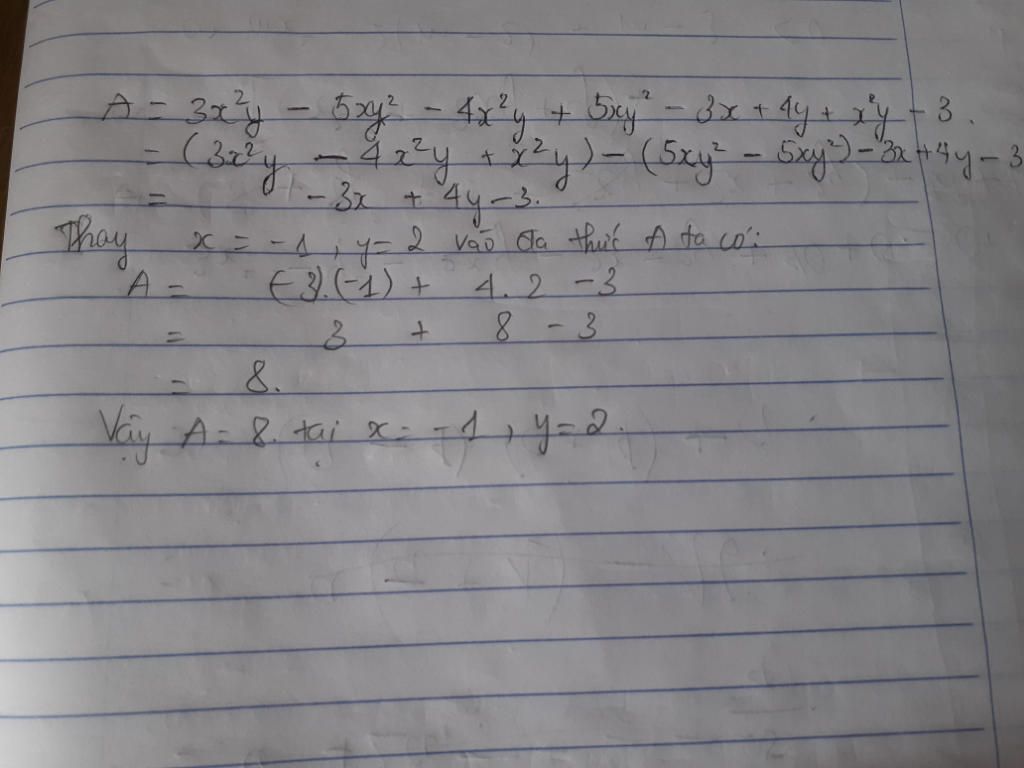 A = 3x²y - 5xy² - 4x²y + 5xy² - 3x + 4y + x²y - 3.
= (3x²y - 4x²y + x²y) - (5xy² - 5xy²) - 3x + 4y - 3
= -3x + 4y - 3.
Thay x = -1, y = 2 vào đa thức A ta có:
A = (-3).(-1) + 4.2 - 3
= 3 + 8 - 3
= 8.
Vậy A = 8. tại x = -1, y = 2.